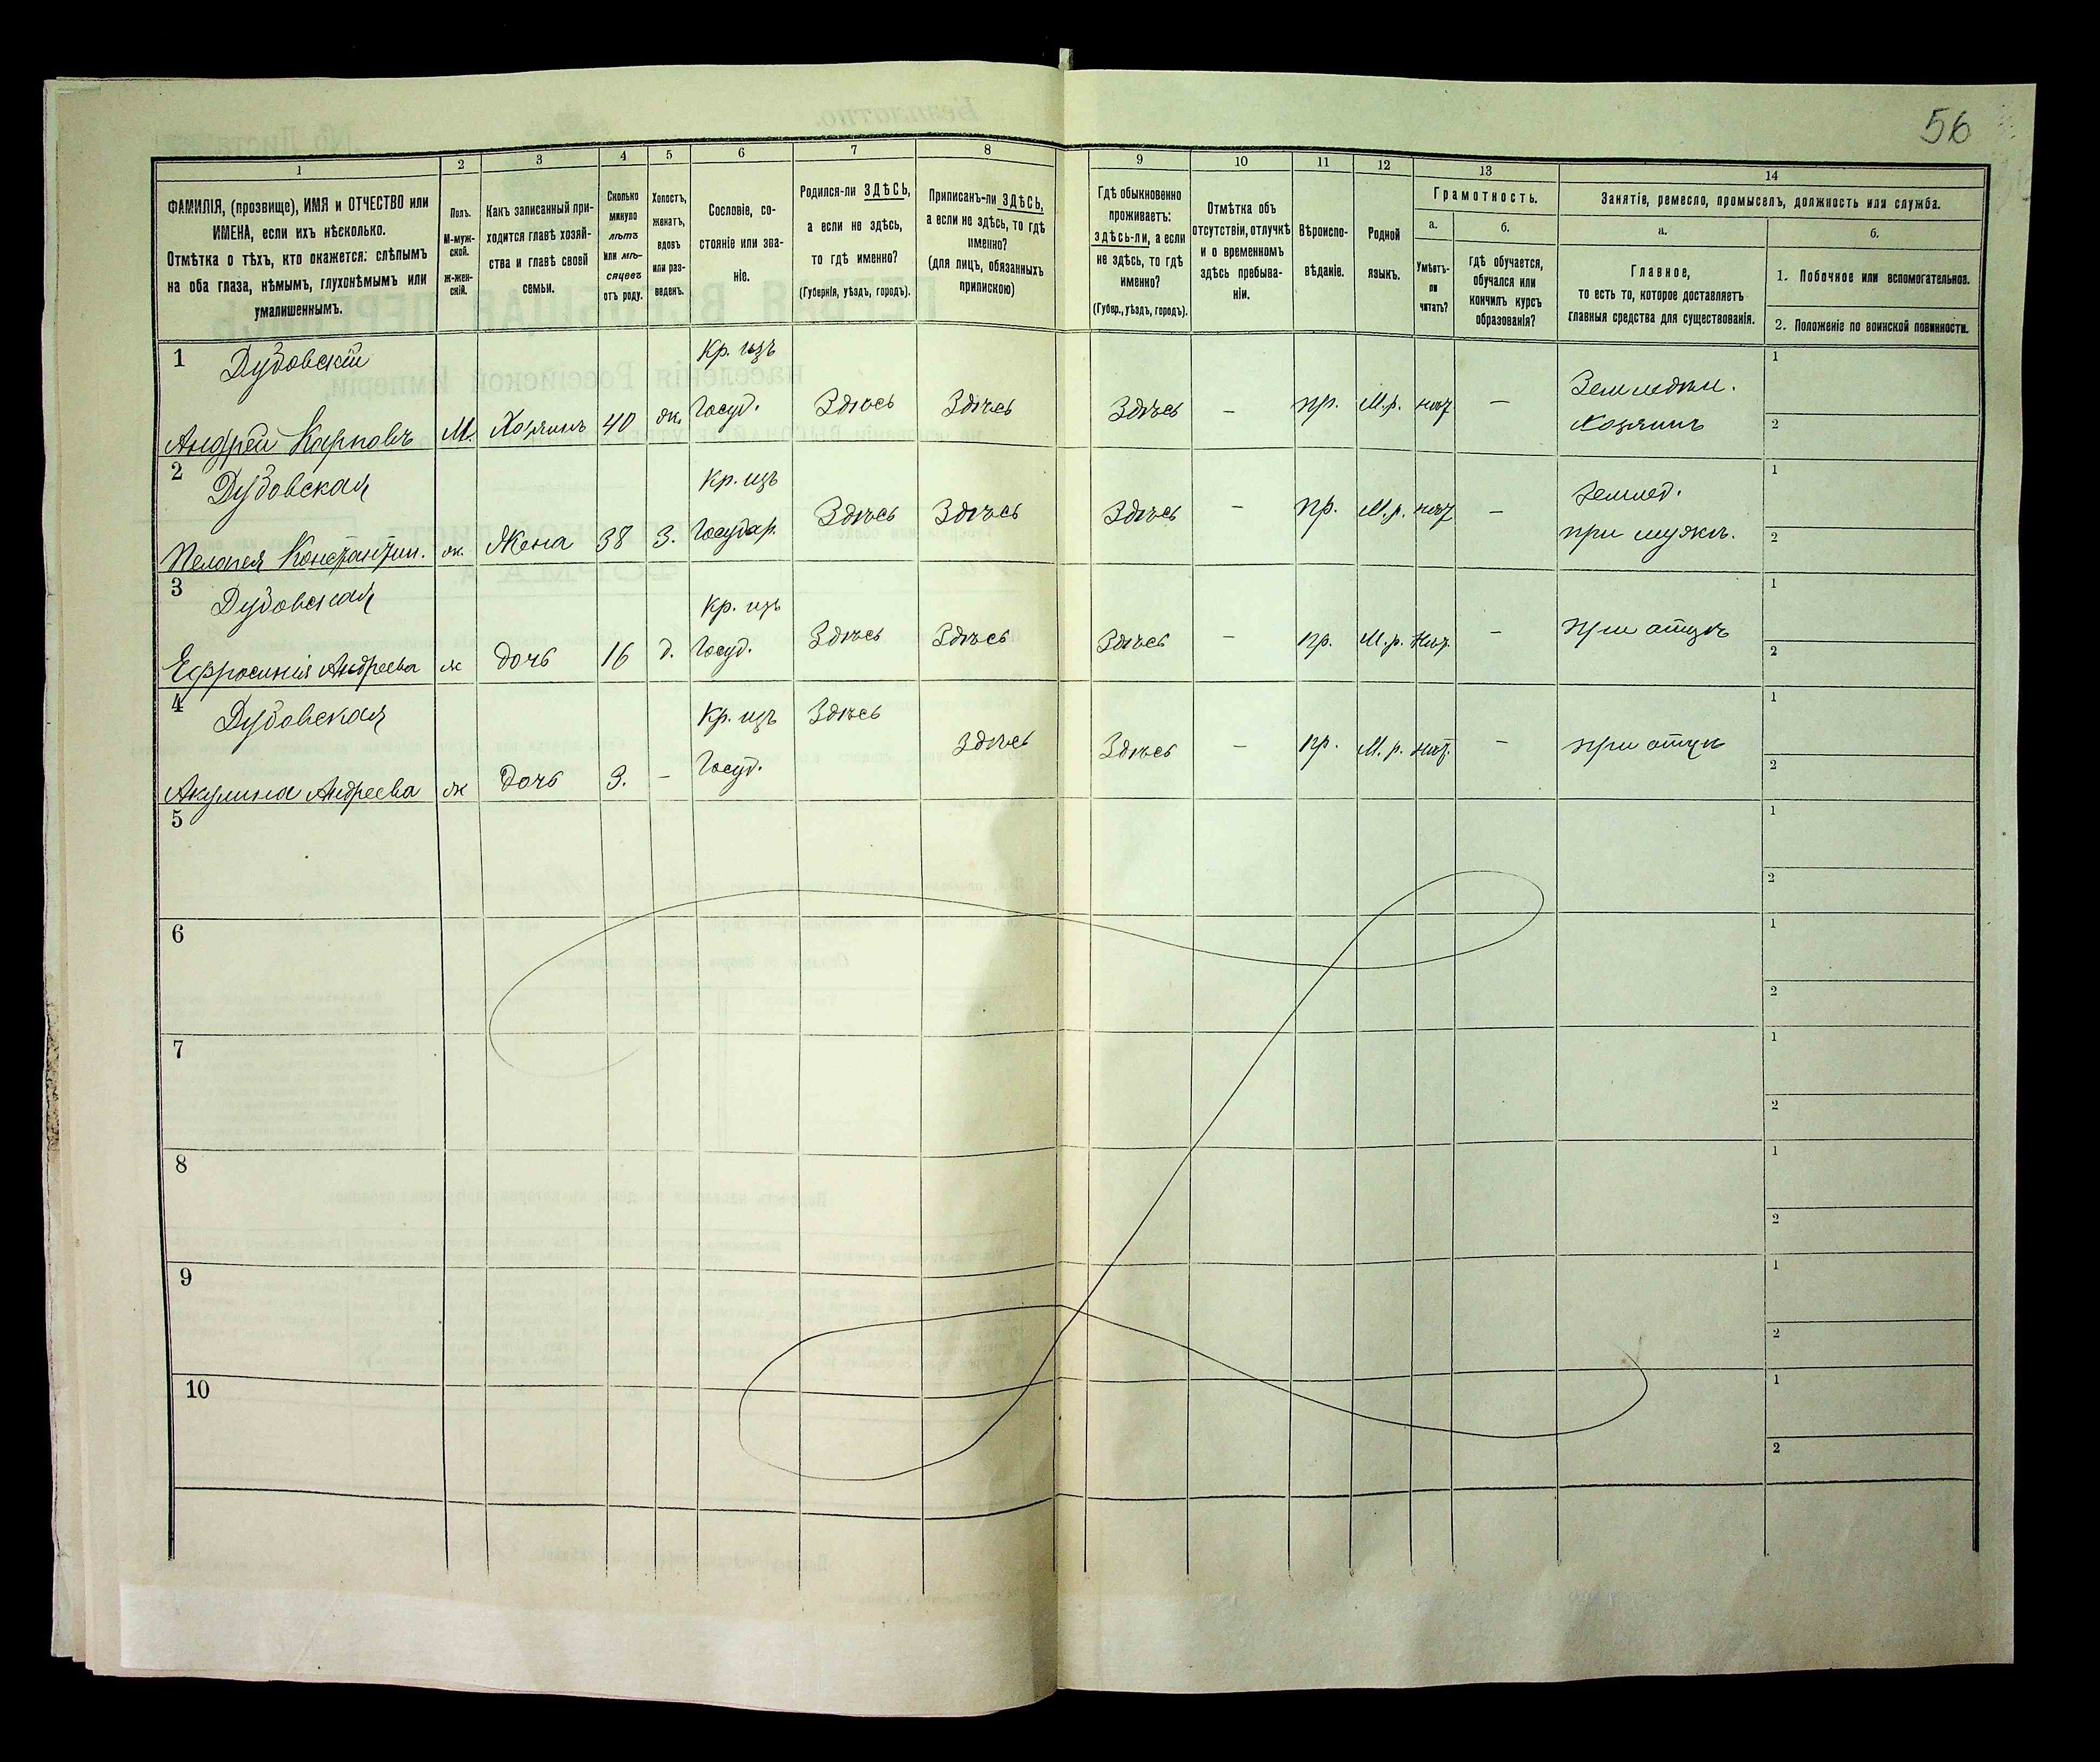 56
1 2 3 4 5 6 7 8 9 10 11 12 13 14
ФАМИЛІЯ, (прозвище), ИМЯ и ОТЧЕСТВО или
ИМЕНА, если ихъ нѣсколько.
Отмѣтка о тѣхъ, кто окажется: слѣпымъ
на оба глаза, нѣмымъ, глухонѣмымъ или
умалишеннымъ.
Полъ.
М-муж-
ской.
ж-жен-
скій.
Какъ записанный при-
ходится главѣ хозяй-
ства и главѣ своей
семьи.
Сколько
минуло
лѣтъ
или мѣ-
сяцевъ
отъ роду.
Холостъ,
женатъ,
вдовъ
или раз-
веденъ.
Сословіе, со-
стояніе или зва-
ніе.
Родился-ли ЗДѢСЬ,
а если не здѣсь,
то гдѣ именно?
(Губернія, уѣздъ, городъ).
Приписанъ-ли ЗДѢСЬ,
а если не здѣсь, то гдѣ
именно?
(для лицъ, обязанныхъ
припискою)
Гдѣ обыкновенно
проживаетъ:
здѣсь-ли, а если
не здѣсь, то гдѣ
именно?
(Губер., уѣздъ, городъ).
Отмѣтка объ
отсутствіи, отлучкѣ
и о временномъ
здѣсь пребыва-
ніи.
Вѣроиспо-
вѣданіе.
Родной
языкъ.
Грамотность.
а.
Умѣетъ-
ли
читать?
б.
гдѣ обучается,
обучался или
кончилъ курсъ
образованія?
Занятіе, ремесло, промыселъ, должность или служба.
а.
Главное,
то есть то, которое доставляетъ
главныя средства для существованія.
б.
1. Побочное или вспомогательное.
2. Положеніе по воинской повинности.
1 Дубовскій Кр. изъ 1
Андрей Карповъ М. Хозяинъ 40 ж. Госуд. Здѣсь Здѣсь Здѣсь — пр. М.р. нѣт — Земледѣл.
Хозяинъ 2
2 Дубовская Кр. изъ 1
Пелагея Константин. ж. Жена 38 З. Государ. Здѣсь Здѣсь Здѣсь — пр. М.р. нѣт — Землед.
при мужѣ. 2
3 Дубовская Кр. изъ 1
Ефросинія Андреева ж дочь 16 д. Госуд. Здѣсь Здѣсь Здѣсь — пр. М.р. нѣт. — При отцѣ 2
4 Дубовская Кр. изъ Здѣсь 1
Акулина Андреева ж дочь 9. — Госуд. Здѣсь Здѣсь — пр. М.р. нѣт. — при отцѣ 2
5 1
2
6 1
2
7 1
2
8 1
2
9 1
2
10 1
2